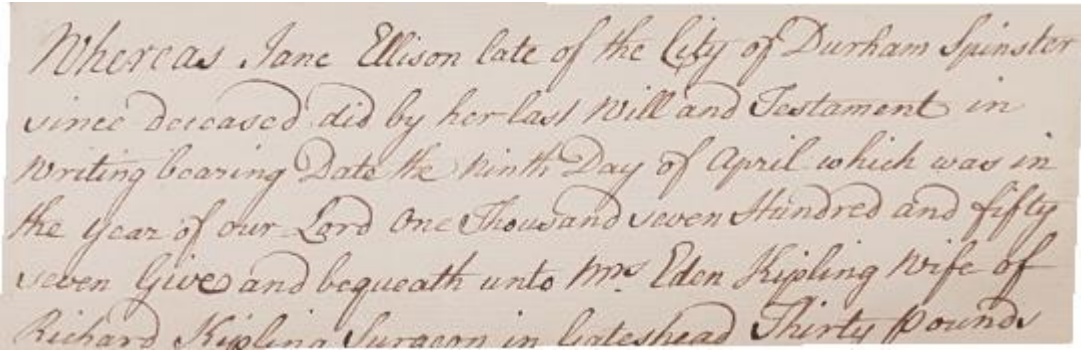 Whereas Jane Ellison late of the City of Durham Spinster
since deceased did by her last Will and Testament in
Writing bearing Date the Ninth Day of April which was in
the Year of our Lord One Thousand seven Hundred and fifty
seven Give and bequeath unto Mrs. Eden Kipling Wife of
Richard Kipling Surgeon in Gateshead Thirty Pounds